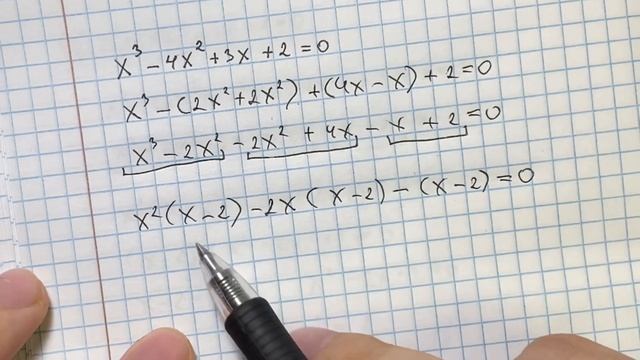 x³ - 4x² + 3x + 2 = 0
x³ - (2x² + 2x²) + (4x - x) + 2 = 0
x³ - 2x² - 2x² + 4x - x + 2 = 0
x² (x - 2) - 2x (x - 2) - (x - 2) = 0